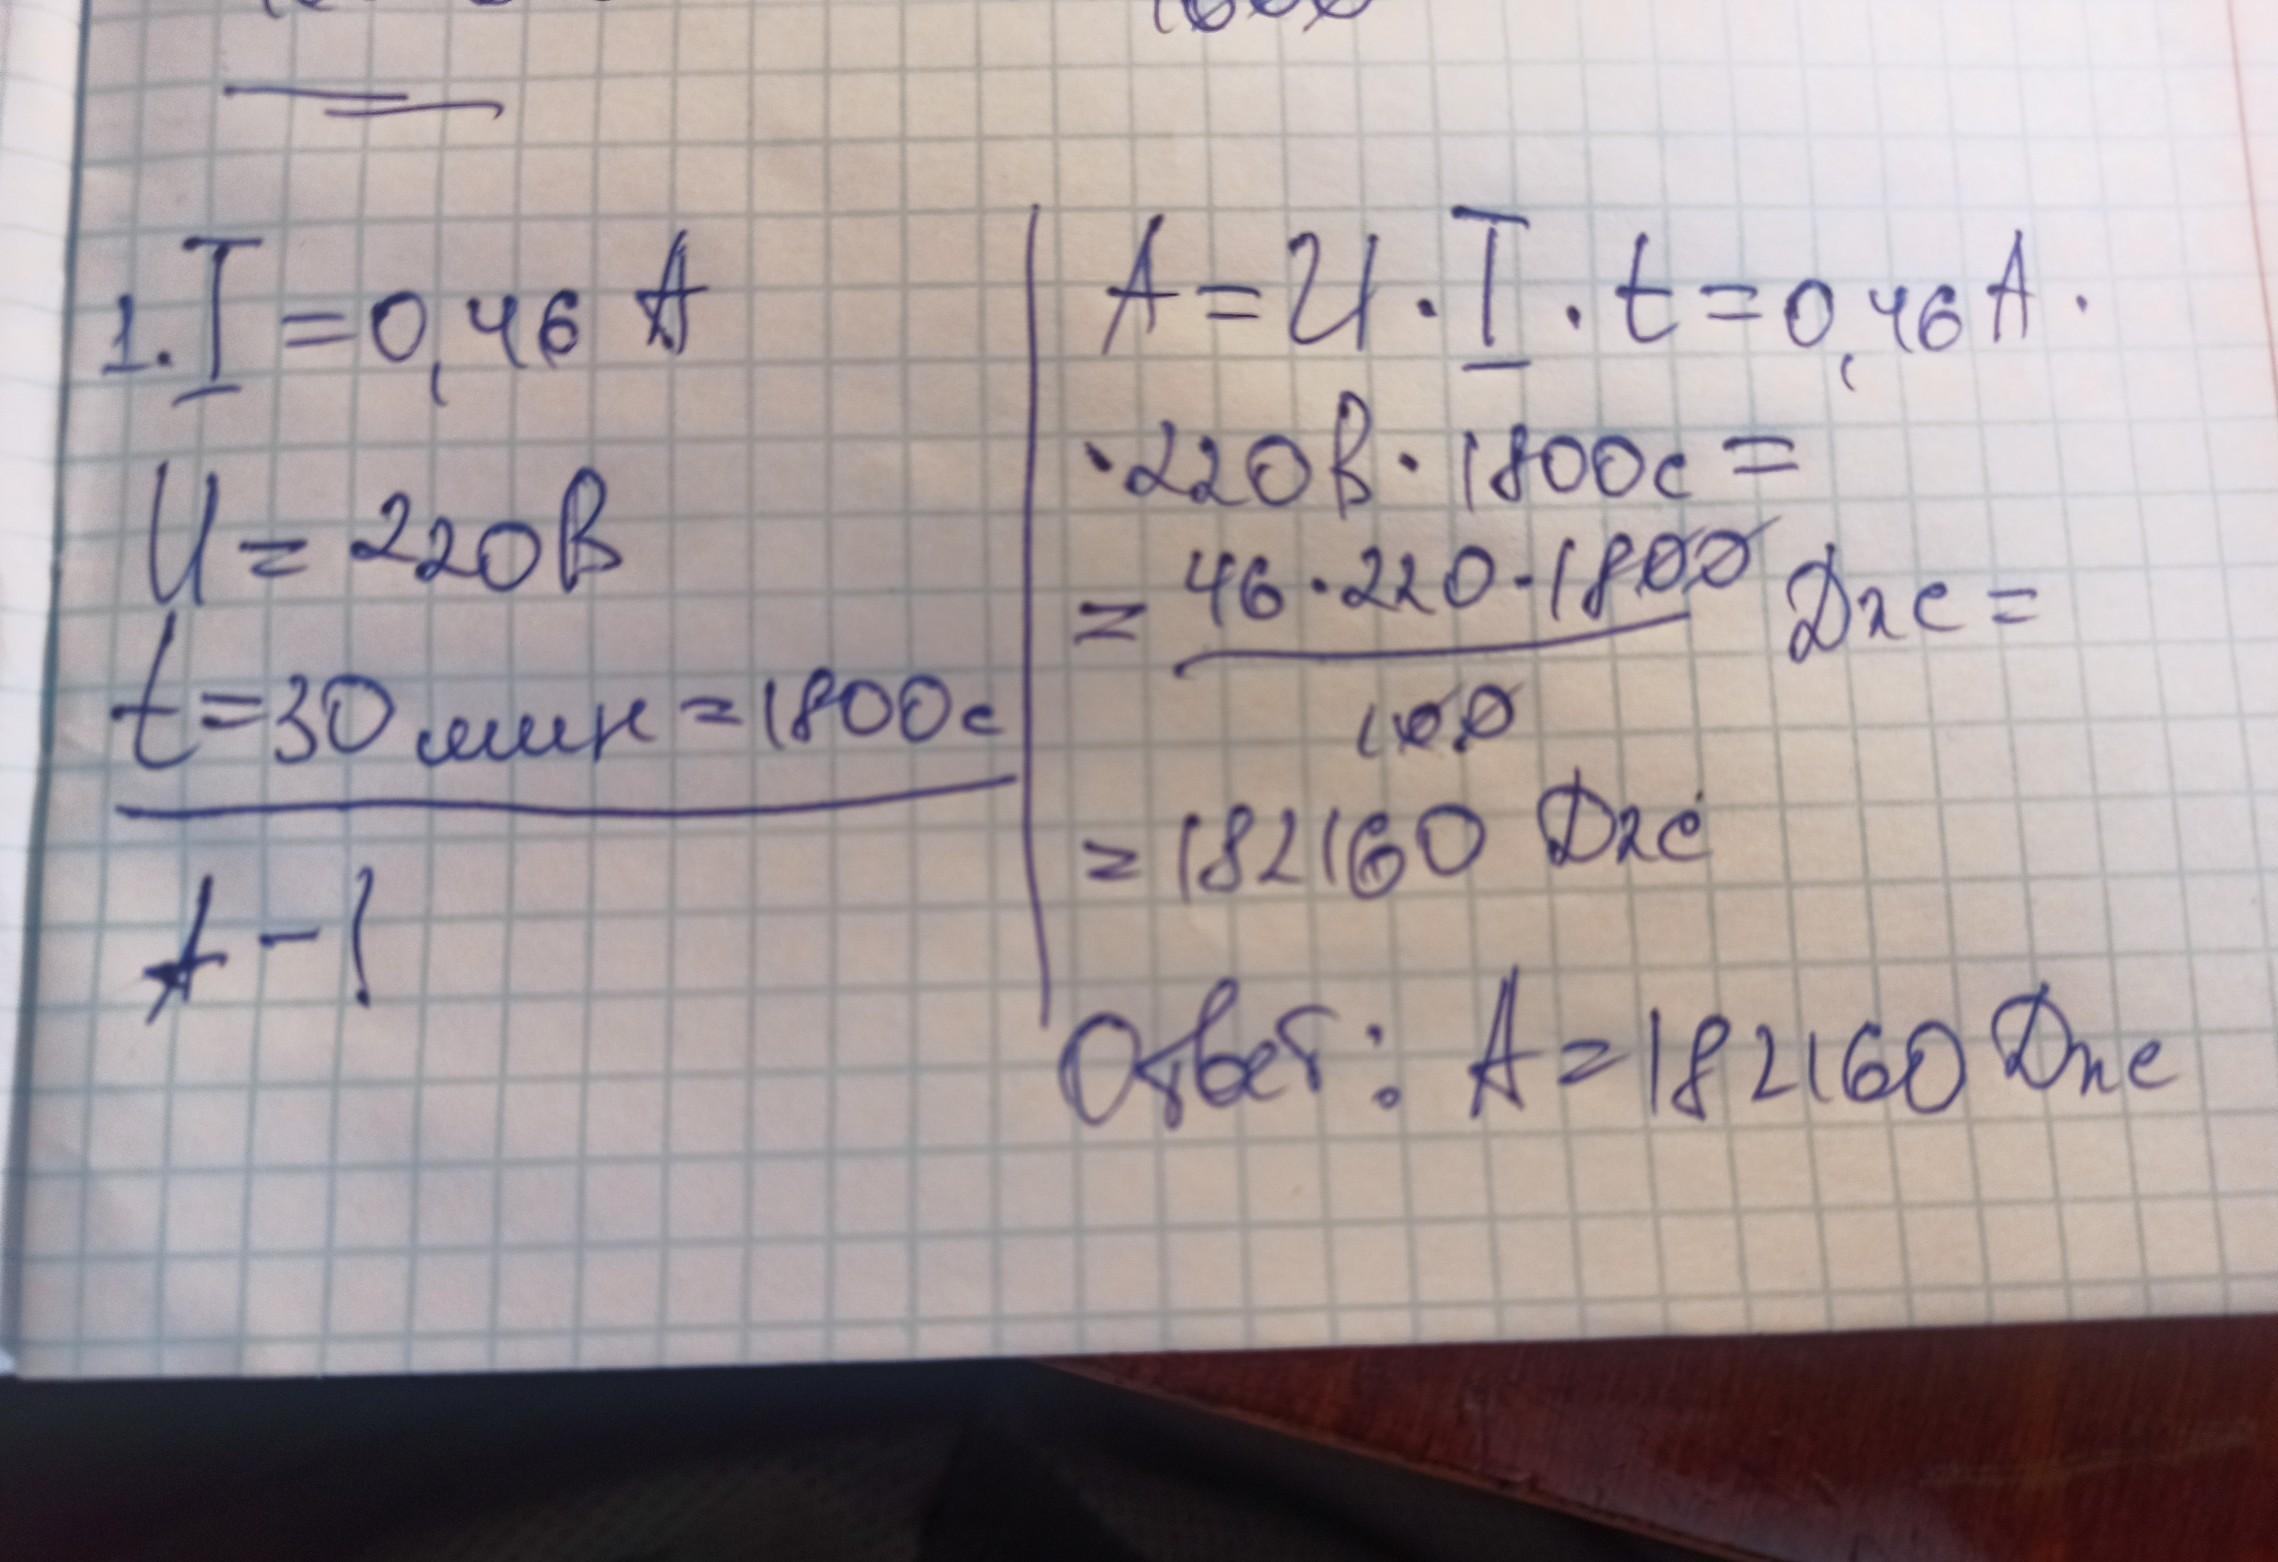 1. I = 0,46 А
U = 220В
t = 30 мин = 1800с
A - ?
A = U · I · t = 0,46А ·
· 220В · 1800с =
= 46 · 220 · 1800 Дж =
100
= 182160 Дж
Ответ: A = 182160 Дж